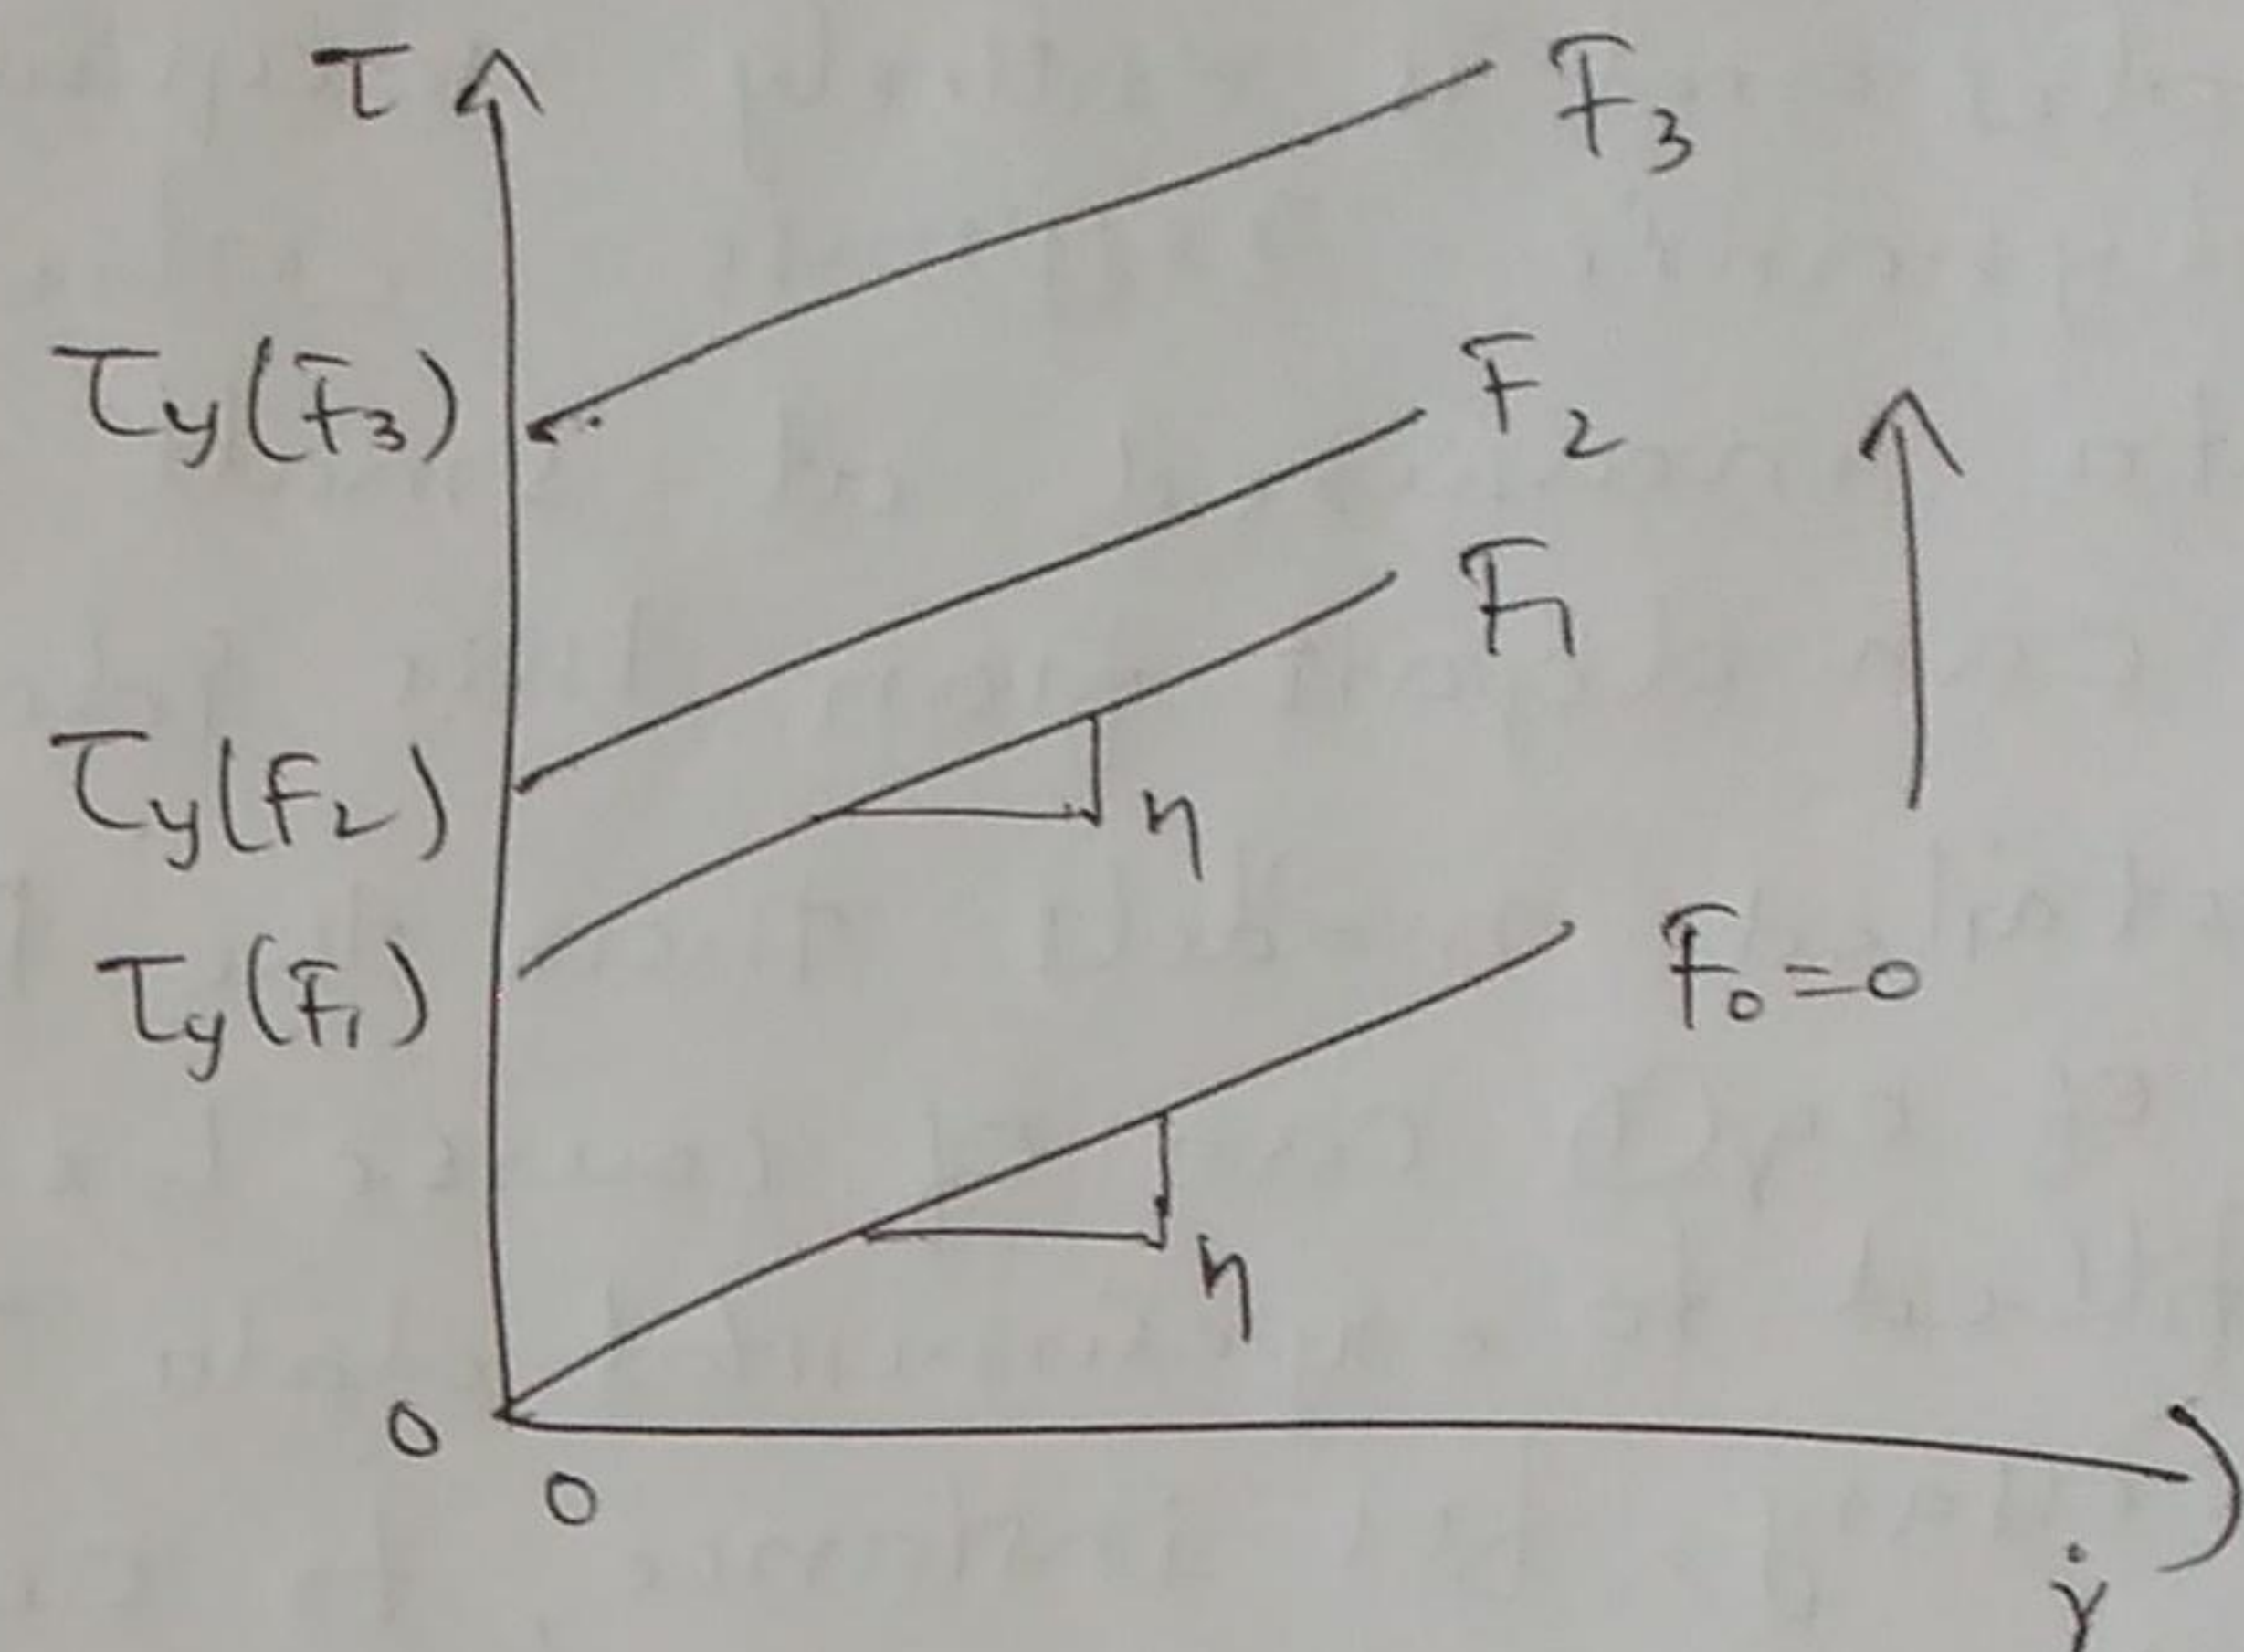 τ
F3
τy(F3)
F2
F1
τy(F2)
η
τy(F1)
F0=0
η
0
0
γ̇